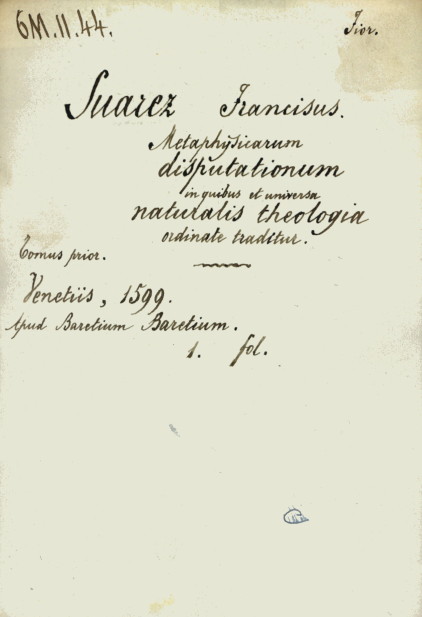 6M.II.44. Fior.
Suarez Francisus.
Metaphysicarum
disputationum
in quibus et universa
naturalis theologia
ordinate traditur.
Tomus prior.
Venetiis, 1599.
Apud Baretium Baretium.
1. fol.